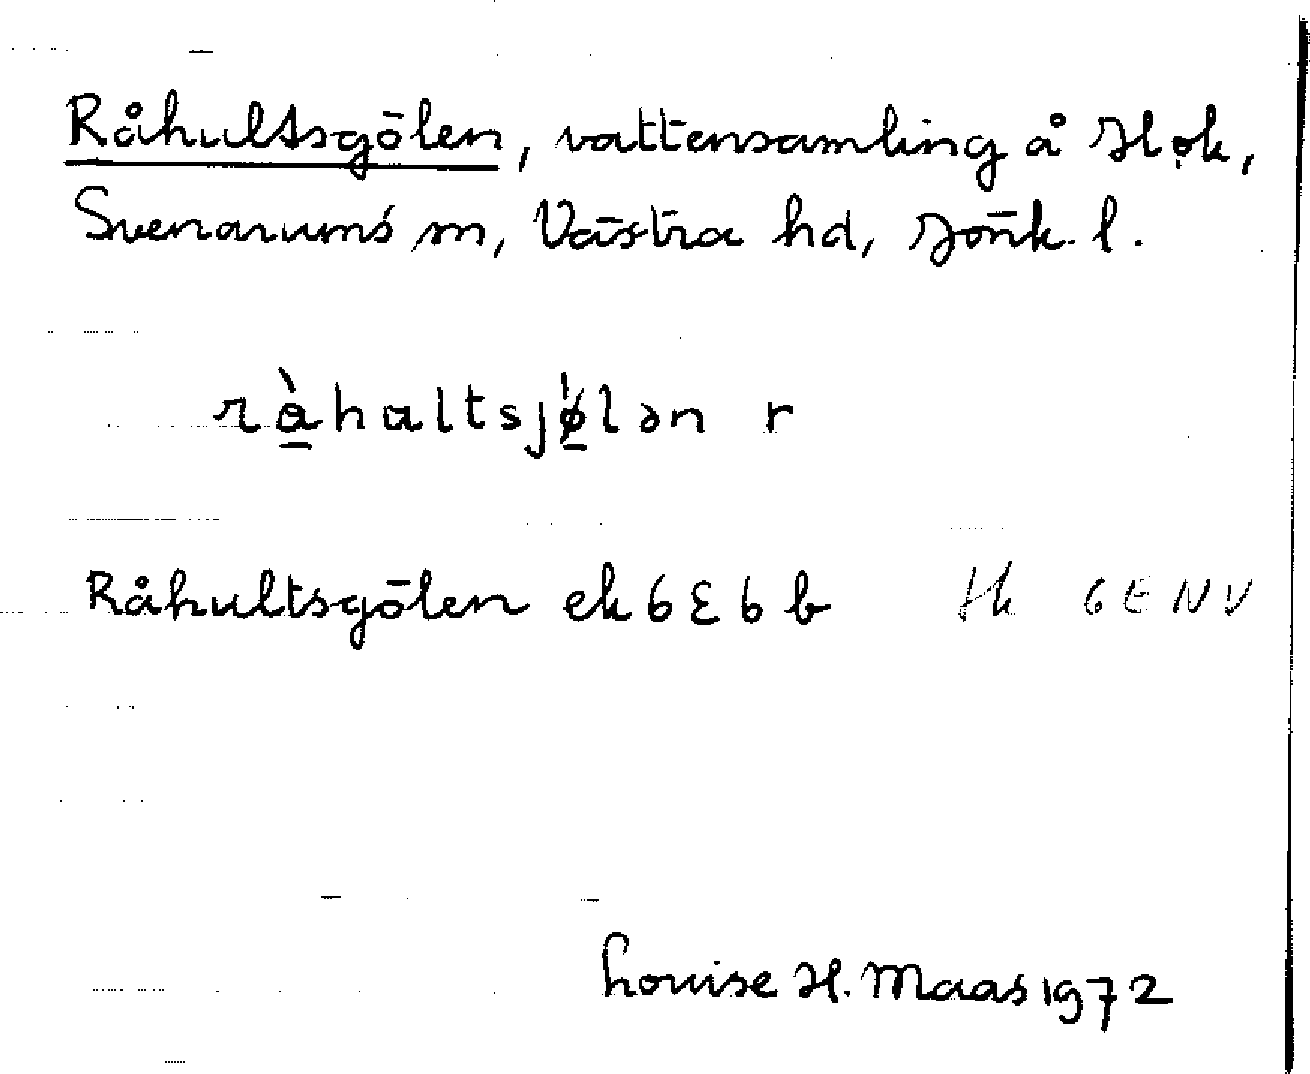 Råhultsgölen, vattensamling å Hok,
Svenarums sn, Västra hd, Jönk. l.
rà̱haltsjø̱̀lən r
Råhultsgölen ek 6 E 6 b hk 6E NV
Louise H. Maas 1972